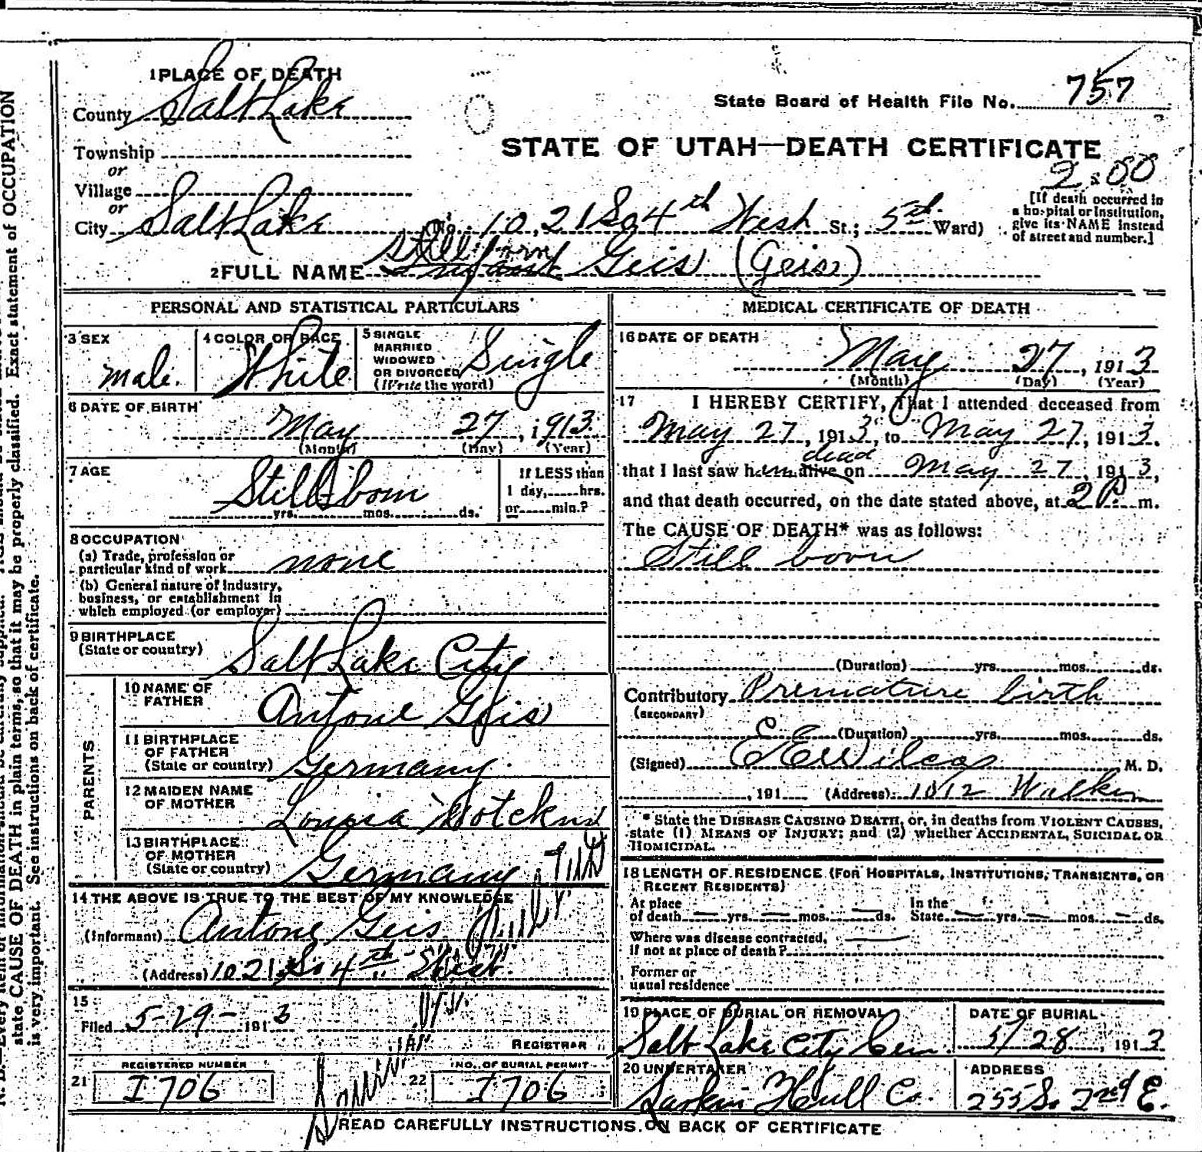 1 PLACE OF DEATH
County Salt Lake
State Board of Health File No. 757
Township
or
Village
or
City Salt Lake
STATE OF UTAH—DEATH CERTIFICATE
2:00
No. 1021 So 4th West St.; 5th Ward)
[If death occurred in a hospital or institution, give its NAME instead of street and number.]
Still born
2 FULL NAME Infant Geis (Geis)
PERSONAL AND STATISTICAL PARTICULARS
3 SEX male.
4 COLOR OR RACE White
5 SINGLE MARRIED WIDOWED OR DIVORCED (Write the word) Single
6 DATE OF BIRTH May 27, 1913
(Month) (Day) (Year)
7 AGE Still born
yrs. mos. ds.
If LESS than 1 day, hrs. or min.?
8 OCCUPATION
(a) Trade, profession or particular kind of work none
(b) General nature of industry, business, or establishment in which employed (or employer)
9 BIRTHPLACE (State or country) Salt Lake City
PARENTS
10 NAME OF FATHER Antone Geis
11 BIRTHPLACE OF FATHER (State or country) Germany.
12 MAIDEN NAME OF MOTHER Louisa
13 BIRTHPLACE OF MOTHER (State or country) Germany
14 THE ABOVE IS TRUE TO THE BEST OF MY KNOWLEDGE
(Informant) Antone Geis
(Address) 1021 So 4th West.
15
Filed 5-29- 1913
REGISTRAR
REGISTERED NUMBER
21 I706
NO. OF BURIAL PERMIT
22 I706
MEDICAL CERTIFICATE OF DEATH
16 DATE OF DEATH
May 27, 1913
(Month) (Day) (Year)
17 I HEREBY CERTIFY, that I attended deceased from
May 27, 1913, to May 27, 1913.
dead
that I last saw him alive on May 27, 1913,
and that death occurred, on the date stated above, at 2 P. m.
The CAUSE OF DEATH* was as follows:
Still born
(Duration) yrs. mos. ds.
Contributory Premature birth
(SECONDARY)
(Duration) yrs. mos. ds.
(Signed) E E Wilcox M. D.
, 191 (Address) 1012 Walker
* State the DISEASE CAUSING DEATH, or, in deaths from VIOLENT CAUSES, state (1) MEANS OF INJURY; and (2) whether ACCIDENTAL, SUICIDAL OR HOMICIDAL.
18 LENGTH OF RESIDENCE (FOR HOSPITALS, INSTITUTIONS, TRANSIENTS, OR RECENT RESIDENTS)
At place of death — yrs. — mos. — ds. In the State — yrs. — mos. — ds.
Where was disease contracted, if not at place of death?
Former or usual residence
19 PLACE OF BURIAL OR REMOVAL
Salt Lake City Cem.
DATE OF BURIAL
5/28, 1913
20 UNDERTAKER
Larkin Hull Co.
ADDRESS
255 So 2nd E.
READ CAREFULLY INSTRUCTIONS ON BACK OF CERTIFICATE
state CAUSE OF DEATH in plain terms, so that it may be properly classified. Exact statement of OCCUPATION
is very important. See instructions on back of certificate.